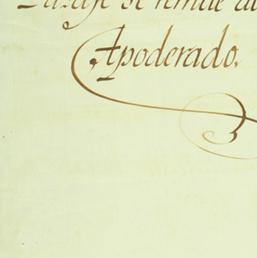 se remite al
Apoderado.